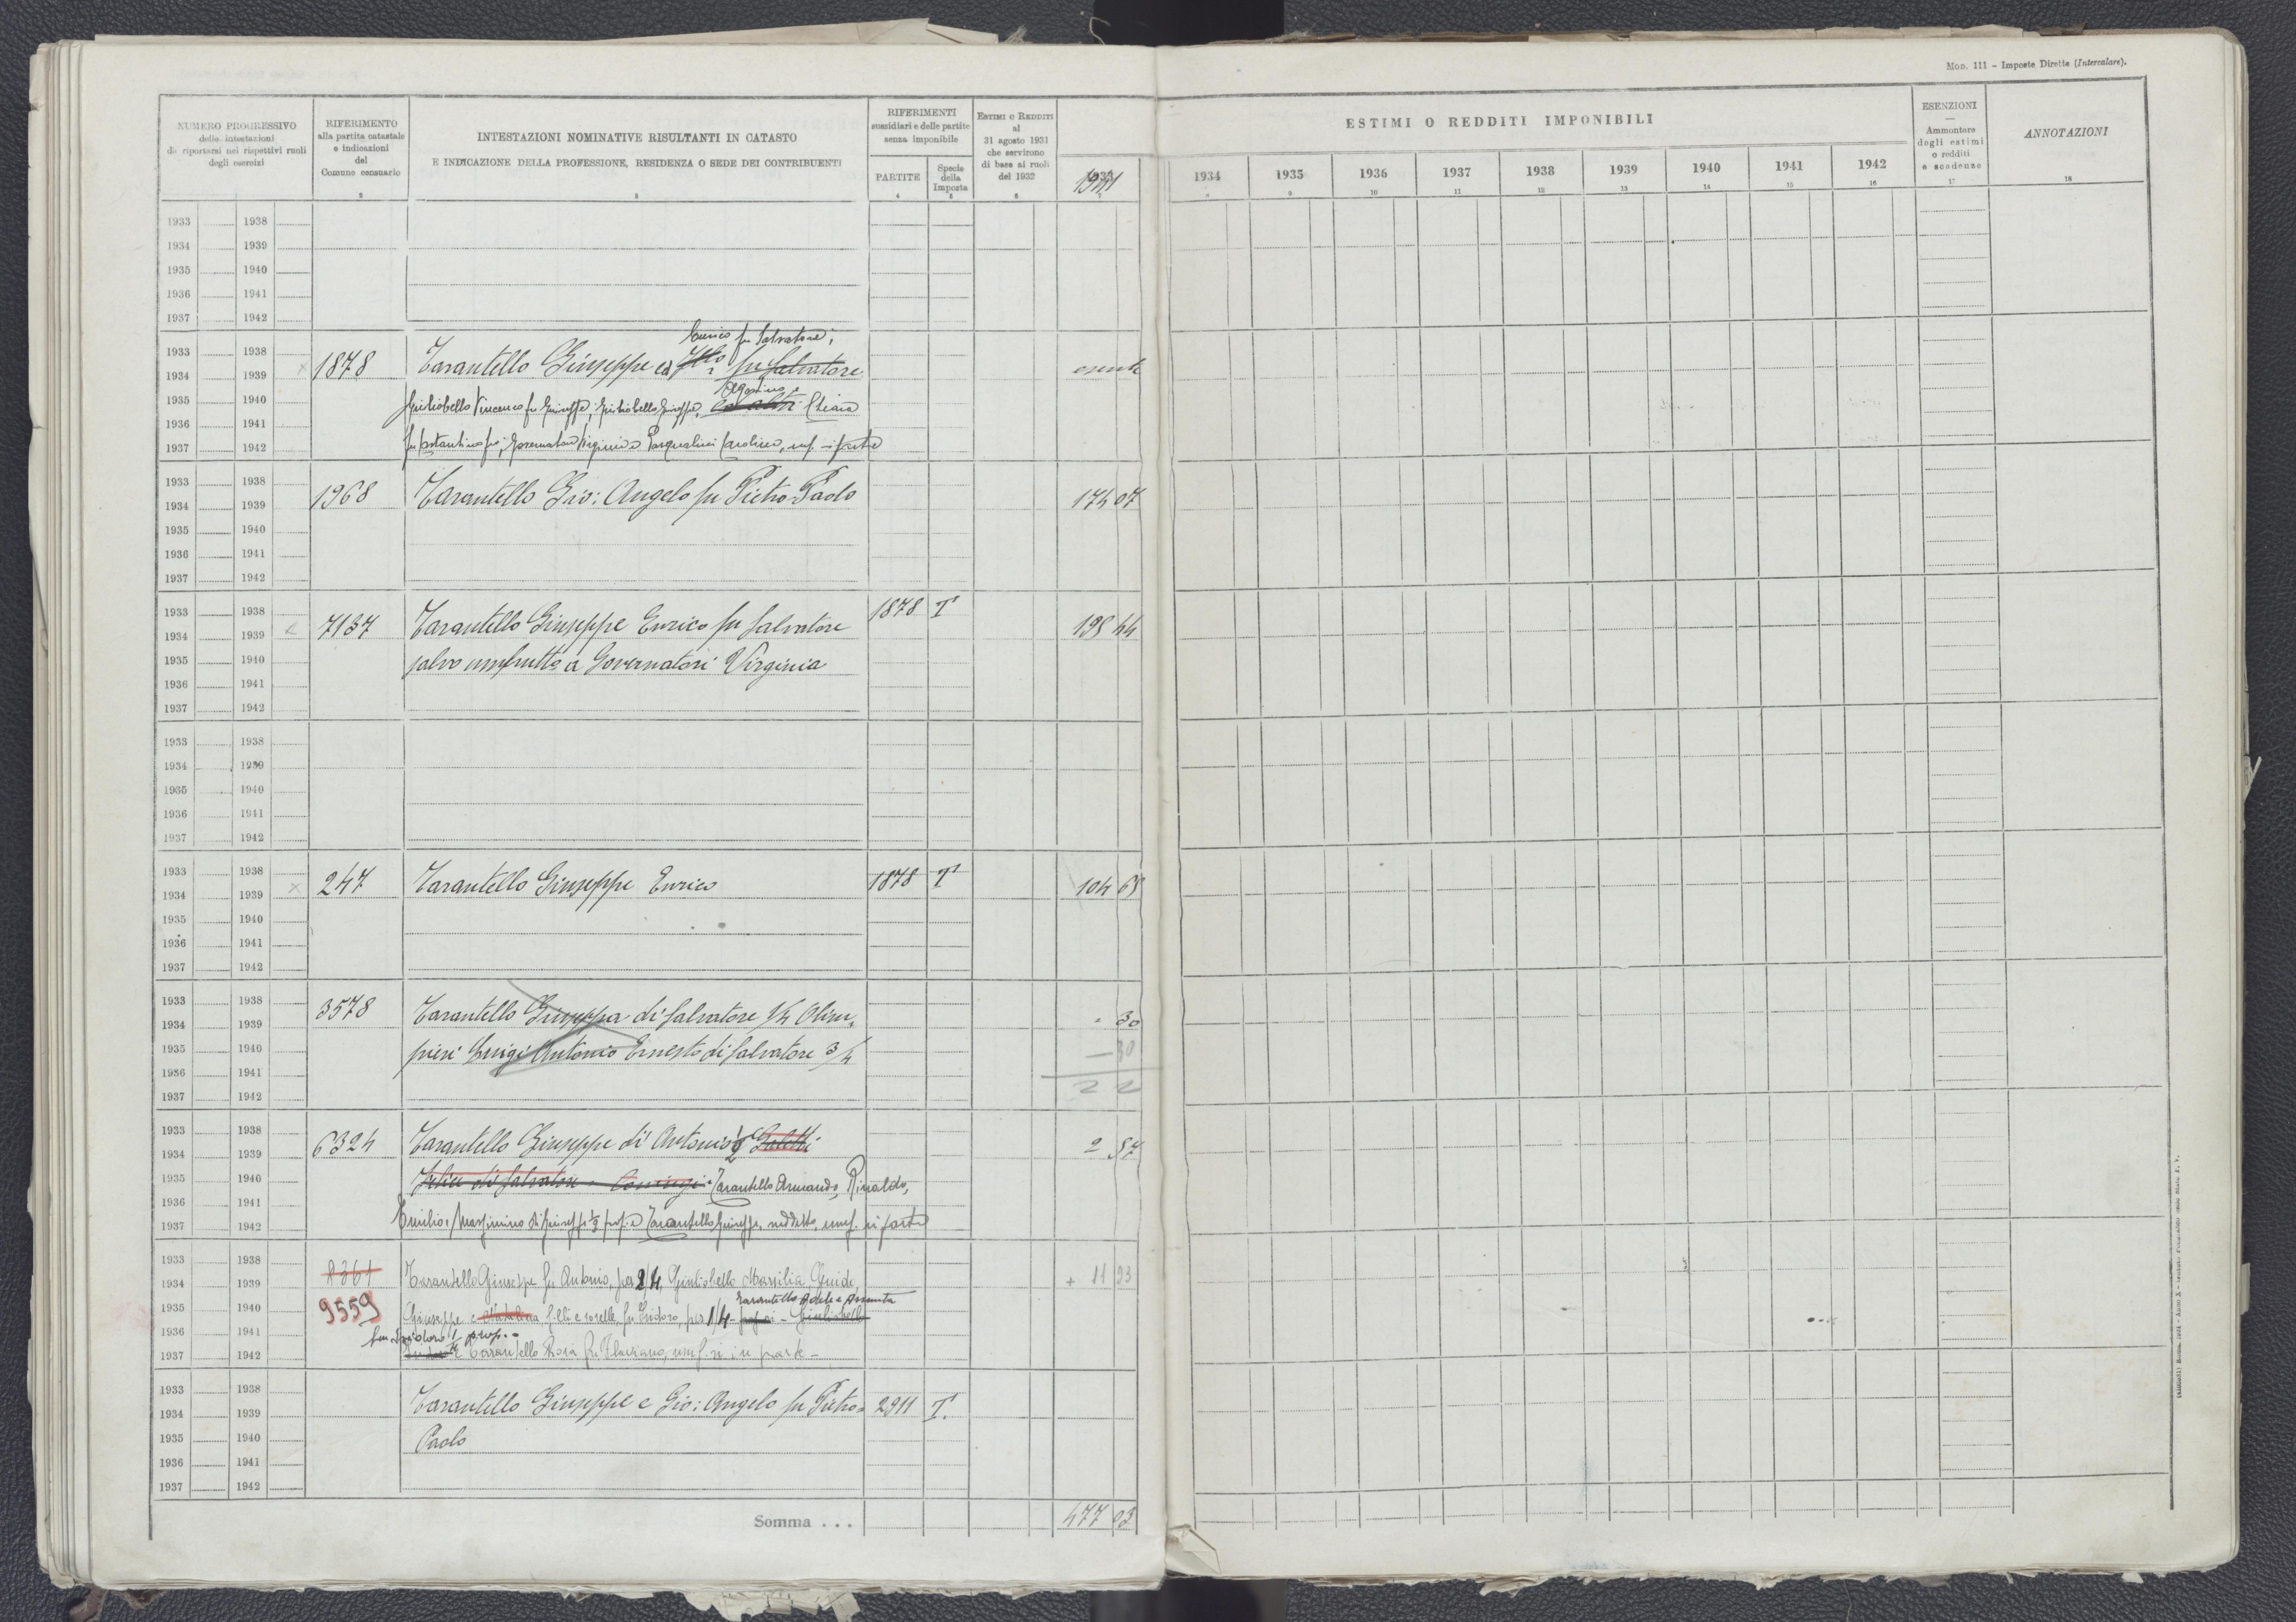 Mod. 111 - Imposte Dirette (Intercalare).
NUMERO PROGRESSIVO
delle intestazioni
da riportarsi nei rispettivi ruoli
degli esercizi
RIFERIMENTO
alla partita catastale
e indicazioni
del
Comune censuario
2
INTESTAZIONI NOMINATIVE RISULTANTI IN CATASTO
E INDICAZIONE DELLA PROFESSIONE, RESIDENZA O SEDE DEI CONTRIBUENTI
3
RIFERIMENTI
sussidiari e delle partite
senza imponibile
PARTITE
4
Specie
della
Imposta
5
ESTIMI O REDDITI
al
31 agosto 1931
che servirono
di base ai ruoli
del 1932
6
1941
7
ESTIMI O REDDITI IMPONIBILI
1934 1935 1936 1937 1938 1939 1940 1941 1942
9 10 11 12 13 14 15 16
ESENZIONI
Ammontare
degli estimi
o redditi
e scadenze
17
ANNOTAZIONI
18
1933 1938
1934 1939
1935 1940
1936 1941
1937 1942
Enrico fu Salvatore;
1933 1938
1878 Tarantello Giuseppe ed fu Salvatore
1934 1939
1935 1940
Giuliobello Vincenzo fu Giuseppe, Giuliobello Giuseppe, ed altri Chiara
1936 1941
fu Costantino Governatori Virginia e Pasqualini Carolina, usuf. in parte
1937 1942
1933 1938
1968 Tarantello Gio: Angelo fu Pietro Paolo 174 07
1934 1939
1935 1940
1936 1941
1937 1942
1933 1938
7137 Tarantello Giuseppe Enrico fu Salvatore 1878 T 195 44
1934 1939
salvo usufrutto a Governatori Virginia
1935 1940
1936 1941
1937 1942
1933 1938
1934 1939
1935 1940
1936 1941
1937 1942
1933 1938
247 Tarantello Giuseppe Enrico 1878 T 104 65
1934 1939
1935 1940
1936 1941
1937 1942
1933 1938
3578 Tarantello Giuseppa di Salvatore 1/4 Olim-
- 30
1934 1939
pieri Luigi Antonio Ernesto di Salvatore 3/4
— 30
1935 1940
1936 1941
1937 1942
1933 1938
6324 Tarantello Giuseppe di Antonio 1/2 Galetti
2 57
1934 1939
1935 1940
Felice di Salvatore Coniugi Tarantello Armando, Rinaldo,
1936 1941
Emilio, Massimino di Giuseppe 1/2 prop. e Tarantello Giuseppe, suddetto, usuf. in parte
1937 1942
1933 1938
8361 Tarantello Giuseppe fu Antonio, per 2/4, Giuliobello Marsilia, Guido,
+ 11 23
1934 1939
Tarantello Adele e Assunta
9559
1935 1940
Giuseppe e f.lli e sorelle, fu Isidoro, per 1/4 Giuliobello
1936 1941
fu Isidoro 1/4 prop. -
1937 1942
Tarantello Rosa fu usuf. in parte -
1933 1938
Tarantello Giuseppe e Gio: Angelo fu Pietro= 2911 T.
1934 1939
Paolo
1935 1940
1936 1941
1937 1942
Somma . . . 477 03